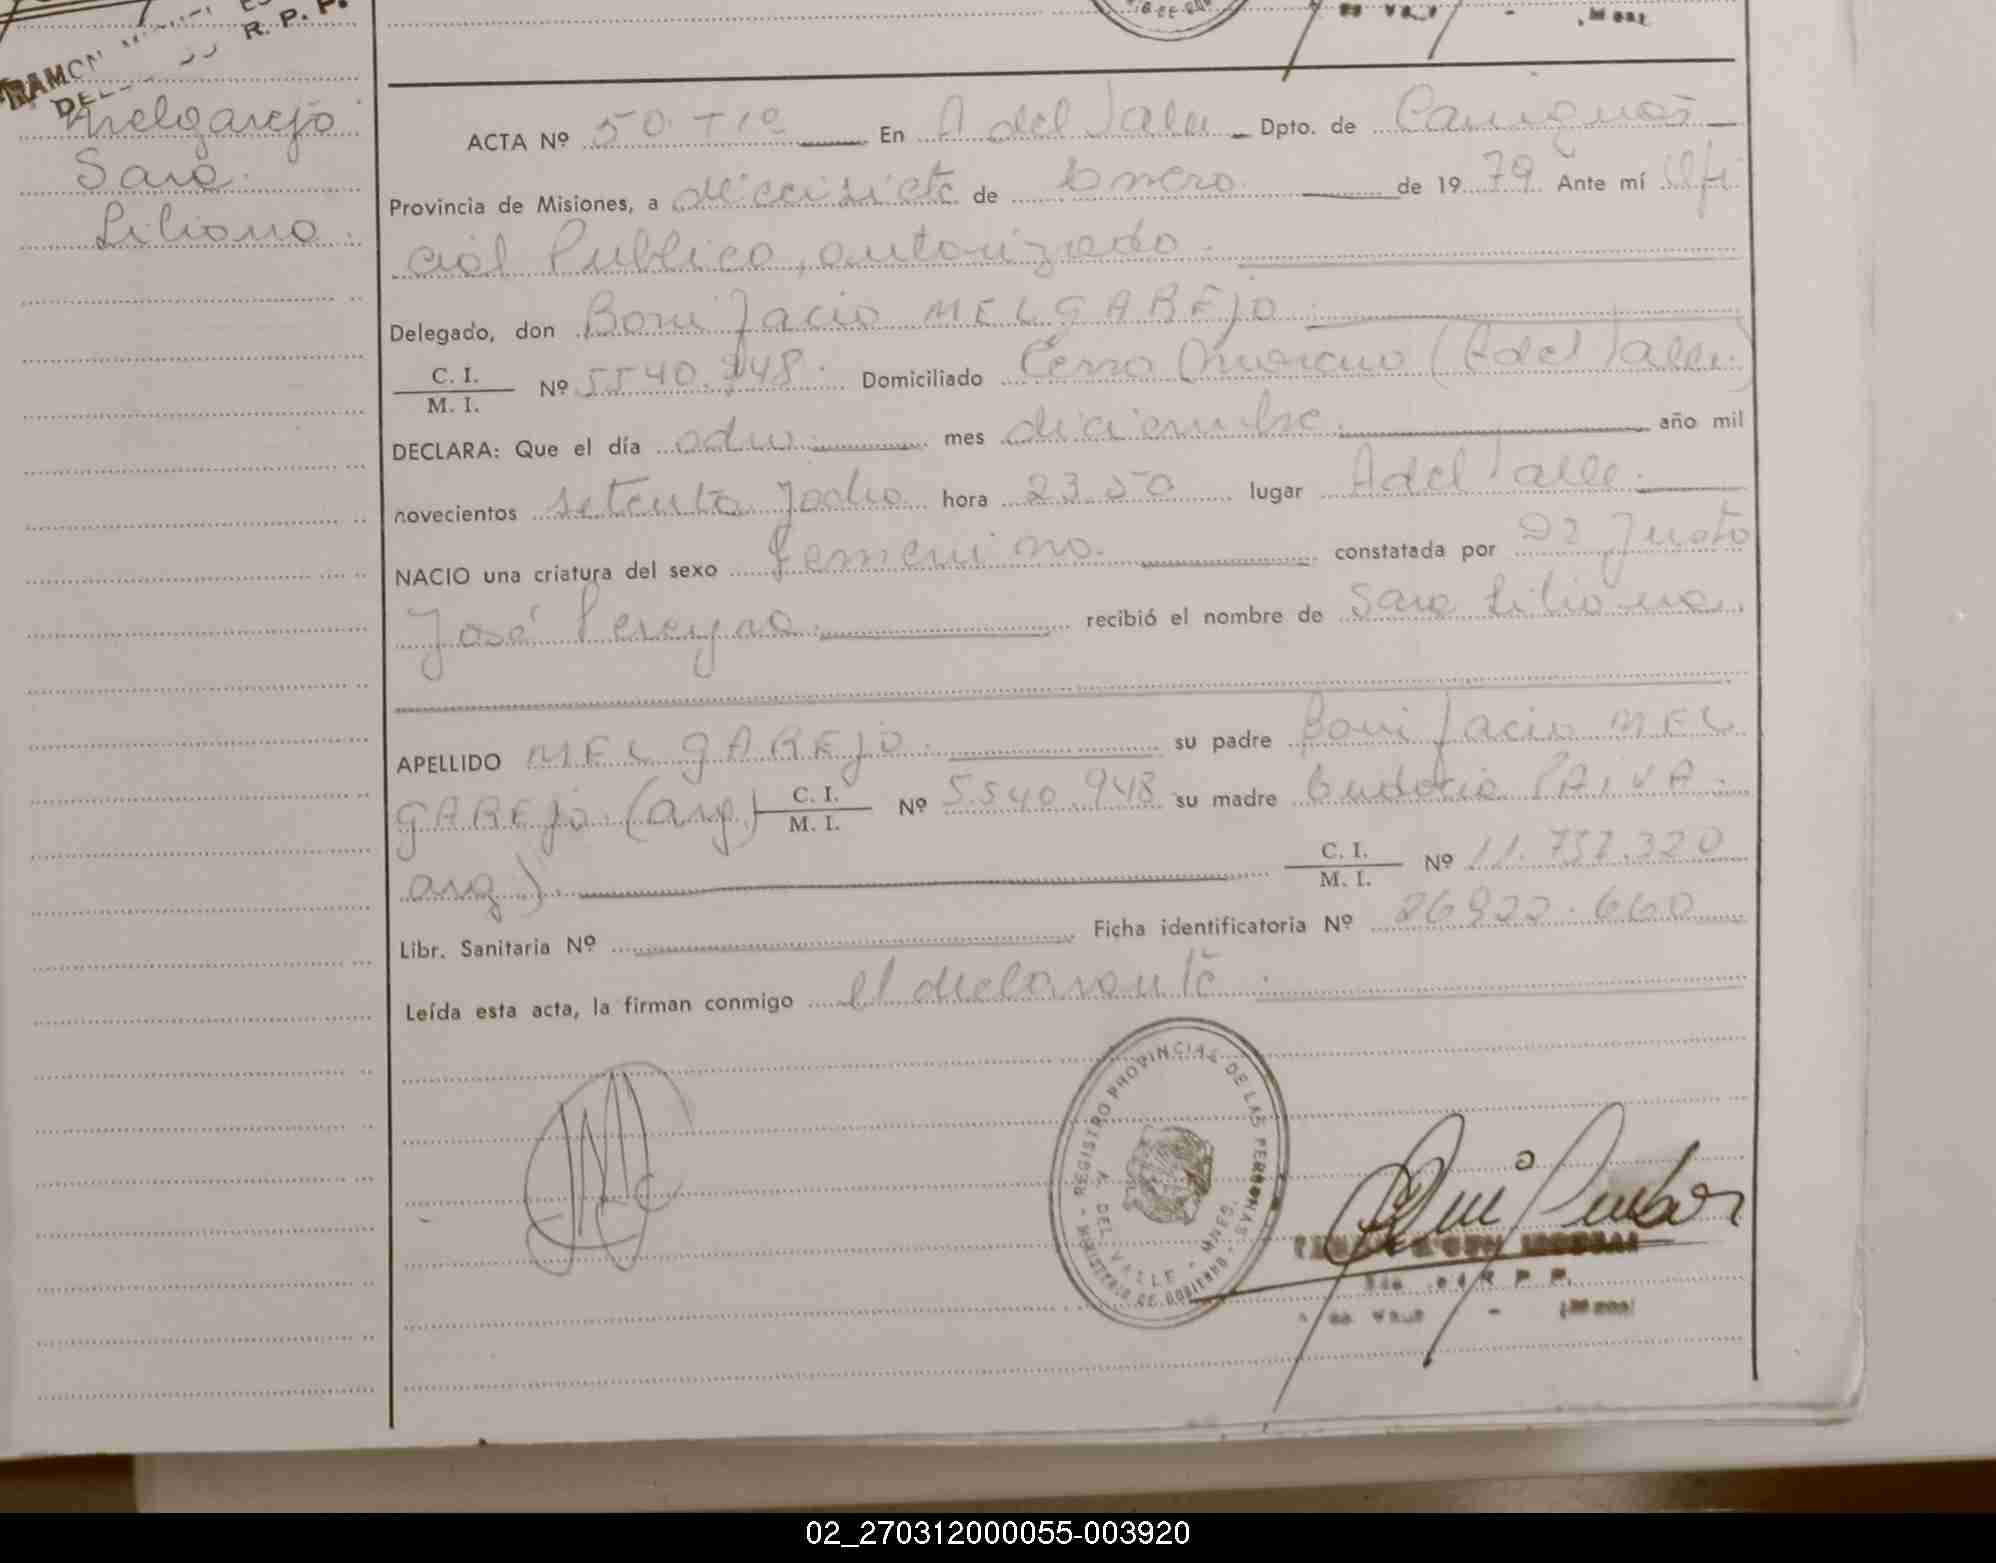 R. P. P.
RAMON
Melgarejo
Sara
Liliana.
ACTA Nº 50. T 1º En A del Valle Dpto. de Cainguás
Provincia de Misiones, a diecisiete de Enero de 1979 Ante mí Ofi
cial Publico, autorizado.
Delegado, don Bonifacio MELGAREJO.
C. I.
M. I.
Nº 5540.948. Domiciliado Cerro Moreno (A del Valle.)
DECLARA: Que el día ocho. mes diciembre. año mil
novecientos setenta y ocho hora 23.50 lugar A del Valle.
NACIO una criatura del sexo femenino. constatada por Dr Justo
José Pereyra. recibió el nombre de Sara Liliana.
APELLIDO MELGAREJO. su padre Bonifacio MEL
GAREJO. (arg.) C. I. M. I. Nº 5.540.948 su madre Eudocia PAIVA.
arg.). C. I. M. I. Nº 11.757.320
Libr. Sanitaria Nº Ficha identificatoria Nº 26922.660
Leída esta acta, la firman conmigo el declarante.
REGISTRO PROVINCIAL DE LAS PERSONAS - MINISTERIO DE GOBIERNO -
A DEL VALLE - MNES.
R P P.
02_270312000055-003920